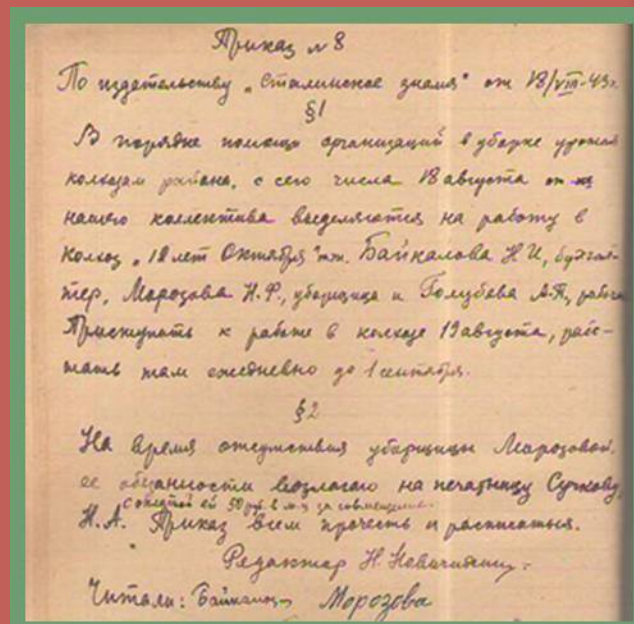 Приказ № 8
По издательству „Сталинское знамя" от 18/VIII-43г.
§1
В порядке помощи организаций в уборке урожая
колхозам района, с сего числа 18 августа от
нашего коллектива выделяются на работу в
колхоз „12 лет Октября" т.т. Байкалова Н И, бухгал-
тер, Морозова Н.Ф., уборщица и Голубева А.П,
Приступить к работе в колхозе 19 августа,
тать там ежедневно до 1 сентября.
§2
На время отсутствия уборщицы Морозовой.
ее обязанности возлагаю на печатницу Сучкову,
с оплатой ей 50 руб в м-ц за совмещение.
Н.А. Приказ всем прочесть и расписаться.
Редактор Н.
Читали: Морозова